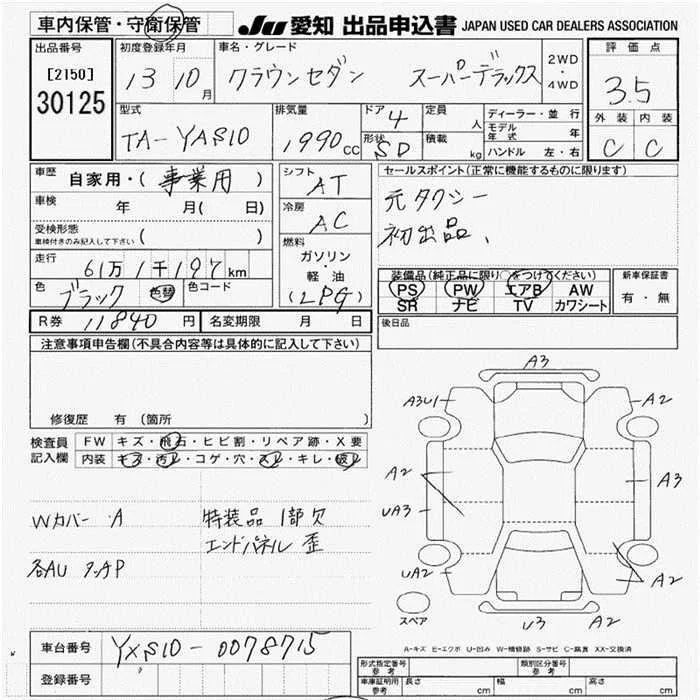 車内保管・守衛保管
JU 愛知 出品申込書 JAPAN USED CAR DEALERS ASSOCIATION
出品番号
[2150]
30125
初度登録年月
13 10月
車名・グレード
クラウンセダン スーパーデラックス
2WD
・
4WD
評価点
3.5
外装 内装
C C
型式
TA-YAS10
排気量
1990cc
ドア 4
形状 SD
定員 人
積載 kg
ディーラー・並行
モデル年式 年
ハンドル 左・右
車歴
自家用・(事業用)
車検 年 月(日)
受検形態
車検付きのみ記入して下さい ( )
走行 61万1千197km
色 ブラック 色替 色コード
R券 11840円 名変期限 月 日
シフト
AT
冷房
AC
燃料
ガソリン
・
軽油
(LPG)
セールスポイント(正常に機能するものに限ります)
元タクシー
初出品、
装備品(純正品に限り○をつけてください)
PS PW エアB AW
SR ナビ TV カワシート
新車保証書
有・無
後日品
注意事項申告欄(不具合内容等は具体的に記入して下さい)
修復歴 有(箇所 )
検査員
記入欄
FW キズ・飛石・ヒビ割・リペア跡・X要
内装 キズ・汚レ・コゲ・穴・スレ・キレ・破レ
Wカバー A
特装品 1部欠
エンドパネル 歪
各AU タッチP
A3
A3U1
A2
A2
A3
UA3
UA2
A2
U3
A2
スペア
A-キズ E-エクボ U-凹み W-補修跡 S-サビ C-腐食 XX-交換済
車台番号 YXS10-0078715
登録番号
形式指定番号
参考
類別区分番号
参考
車庫証明用
参考
長さ cm 幅 cm 高さ cm